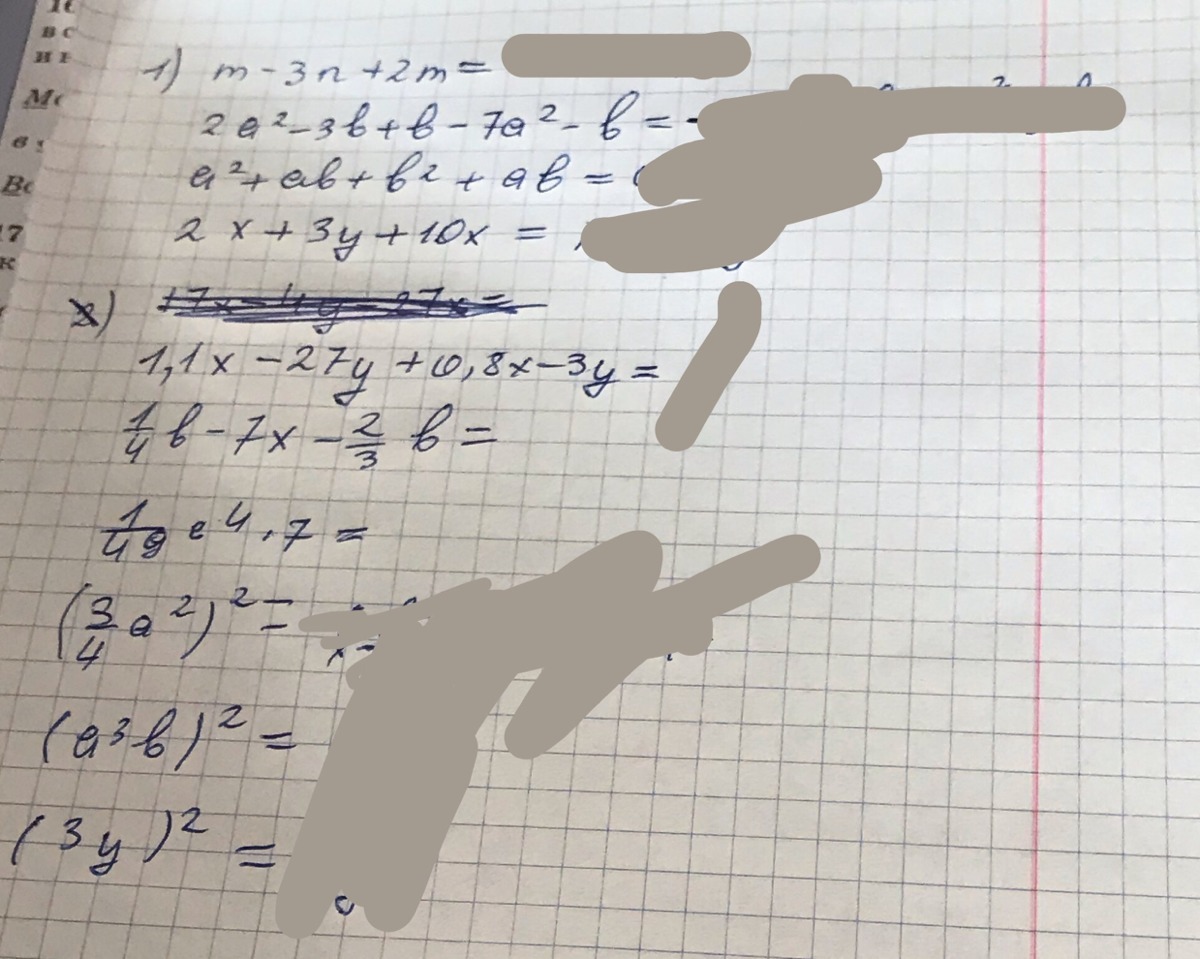 1) m - 3n + 2m =
2a² - 3b + b - 7a² - b = -
a² + ab + b² + ab =
2x + 3y + 10x =
1,1x - 27y + 0,8x - 3y =
1/4 b - 7x - 2/3 b =
1/49 c⁴ · 7 =
(3/4 a²)² =
(a³b)² =
(3y)² =